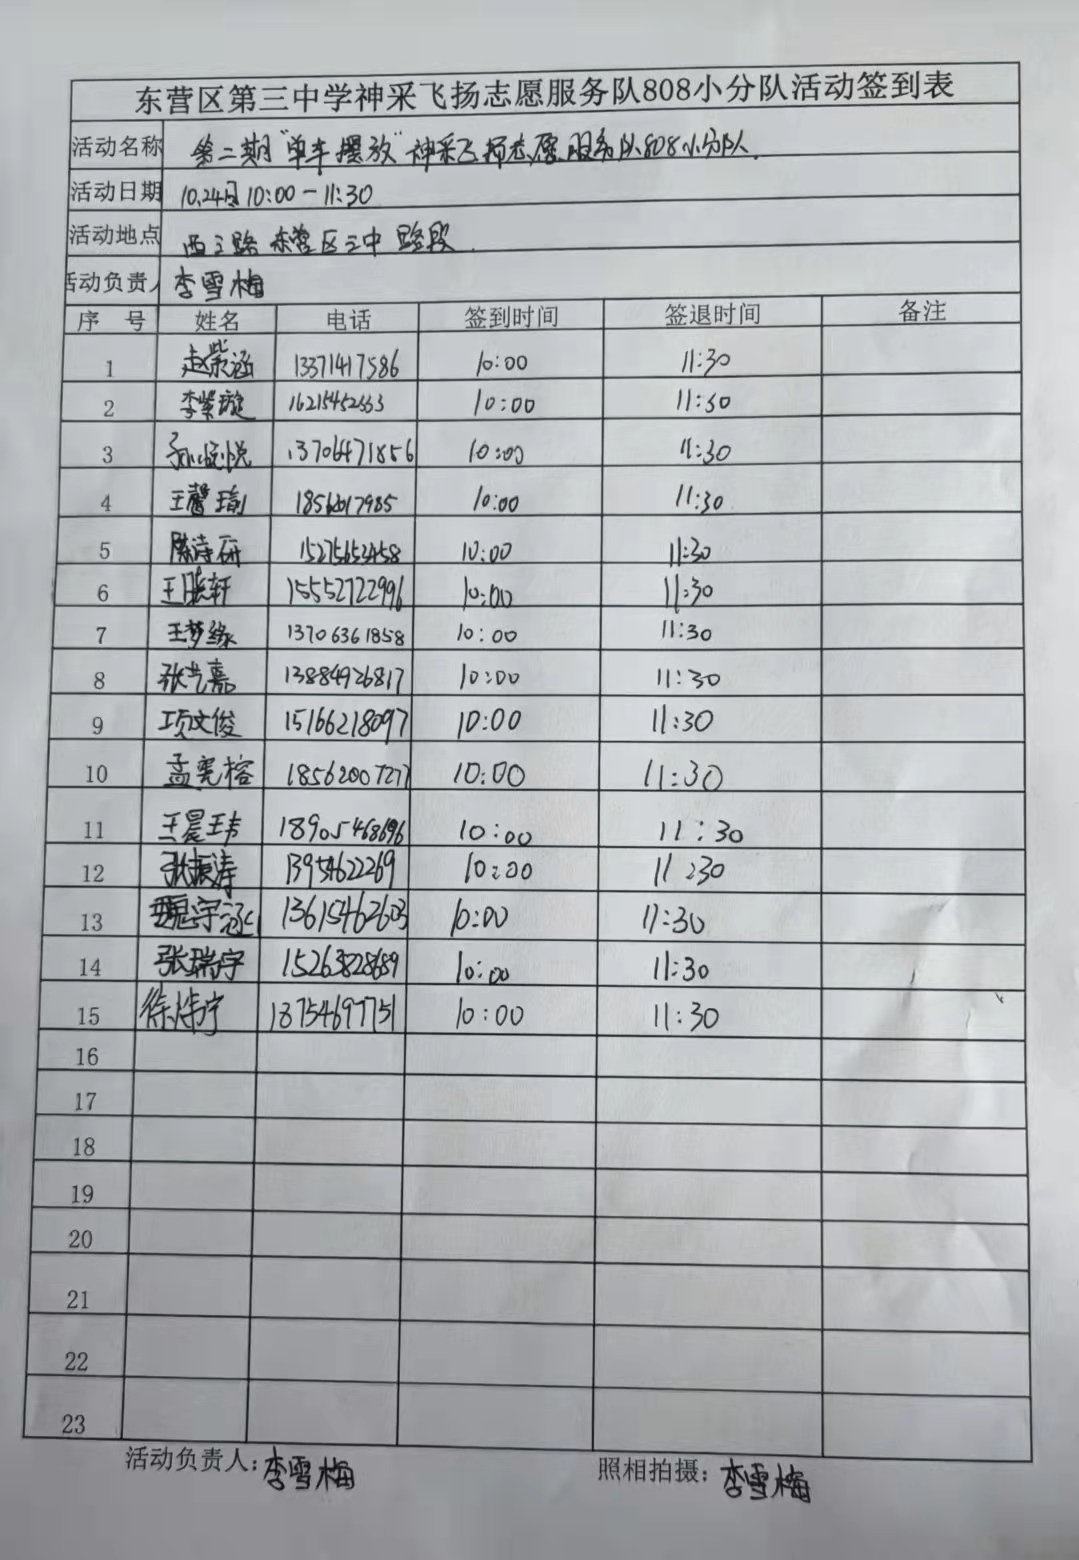 东营区第三中学神采飞扬志愿服务队808小分队活动签到表
活动名称 第二期“单车摆放”神采飞扬志愿服务队808小分队.
活动日期 10.24日10:00-11:30
活动地点 西三路 东营区三中 路段.
活动负责人 李雪梅
序 号 姓名 电话 签到时间 签退时间 备注
1 赵紫涵 13371417586 10:00 11:30
2 李紫璇 10:00 11:30
3 13706471856 10:00 11:30
4 王馨瑜 10:00 11:30
5 陈诗研 15275652458 10:00 11:30
6 轩 15552722996 10:00 11:30
7 王梦缘 13706361858 10:00 11:30
8 张艺嘉 13884926817 10:00 11:30
9 项文俊 15166218097 10:00 11:30
10 孟宪榕 18562007277 10:00 11:30
11 王晨玮 18905468696 10:00 11:30
12 张振涛 1395462269 10:00 11:30
13 魏宇 13615462603 10:00 11:30
14 张瑞宇 15263828689 10:00 11:30
15 徐炜宇 10:00 11:30
16
17
18
19
20
21
22
23
活动负责人:李雪梅 照相拍摄:李雪梅